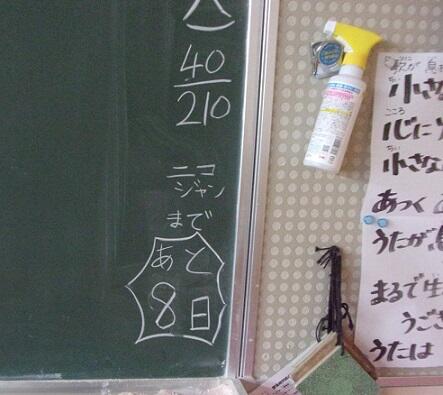 40
210
ニコ
ジャン
まで
あと
8日
小さな
こころ
心に
小さな
あつく
うたが
まるで生
うごき
うたは